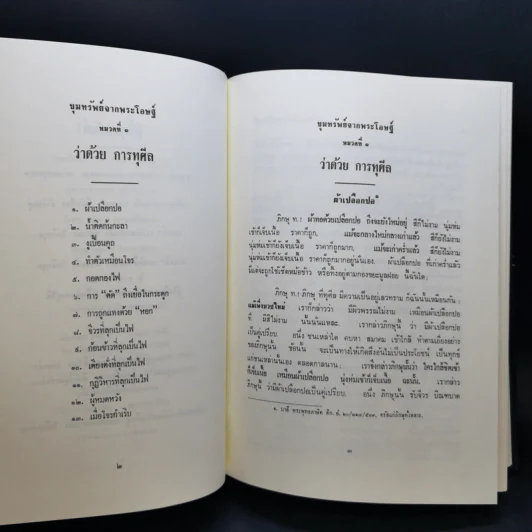 ขุมทรัพย์จากพระโอษฐ์
หมวดที่ ๑
ว่าด้วย การทุศีล
๑. ผ้าเปลือกปอ
๒. น้ำติดก้นกะลา
๓. งูเปื้อนคูถ
๔. ทำตัวเหมือนโจร
๕. กอดกองไฟ
๖. การ "ตัด" ถึงเยื่อในกระดูก
๗. การถูกแทงด้วย "หอก"
๘. จีวรที่ลุกเป็นไฟ
๙. ก้อนข้าวที่ลุกเป็นไฟ
๑๐. เตียงตั่งที่ลุกเป็นไฟ
๑๑. กุฏิวิหารที่ลุกเป็นไฟ
๑๒. ผู้หมดหวัง
๑๓. เมื่อโจรกำเริบ
๒
ขุมทรัพย์จากพระโอษฐ์
หมวดที่ ๑
ว่าด้วย การทุศีล
ผ้าเปลือกปอ*
ภิกษุ ท.! ผ้าทอด้วยเปลือกปอ ถึงจะยังใหม่อยู่ สีก็ไม่งาม นุ่งห่ม
เข้าก็เจ็บเนื้อ ราคาก็ถูก, แม้จะกลางใหม่กลางเก่าแล้ว สีก็ยังไม่งาม
นุ่งห่มเข้าก็ยังเจ็บเนื้อ ราคาก็ถูกมาก, แม้จะเก่าคร่ำแล้ว สีก็ยังไม่งาม
นุ่งห่มเข้าก็ยังเจ็บเนื้อ ราคาก็ถูกมากอยู่นั่นเอง. ผ้าเปลือกปอ ที่เก่าคร่ำแล้ว
มีแต่จะถูกใช้เช็ดหม้อข้าว หรือทิ้งอยู่ตามกองขยะมูลฝอย นี้ฉันใด;
ภิกษุ ท.! ภิกษุ ที่ทุศีล มีความเป็นอยู่เลวทราม ก็ฉันนั้นเหมือนกัน:
แม้เพิ่งบวชใหม่ เราก็กล่าวว่า มีผิวพรรณไม่งาม เหมือนผ้าเปลือกปอ
ที่ มีสีไม่งาม นั้นนั่นแหละ. เรากล่าวภิกษุนี้ว่า มีผ้าเปลือกปอ
เป็นคู่เปรียบ. อนึ่ง ชนเหล่าใด คบหา สมาคม เข้าใกล้ ทำตามเยี่ยงอย่าง
ของภิกษุนั้น ข้อนั้น จะเป็นทางให้เกิดสิ่งอันไม่เป็นประโยชน์ เป็นทุกข์
แก่ชนเหล่านั้นเอง ตลอดกาลนาน;